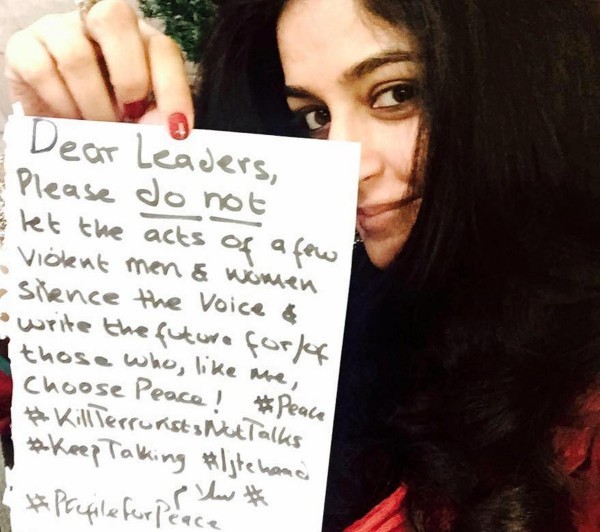 Dear Leaders,
Please do not
let the acts of a few
violent men & women
silence the voice &
write the future for/of
those who, like me,
choose Peace! #Peace
#KillTerroristsNotTalks
#KeepTalking #Ijtehaad
#سلام
#ProfileForPeace